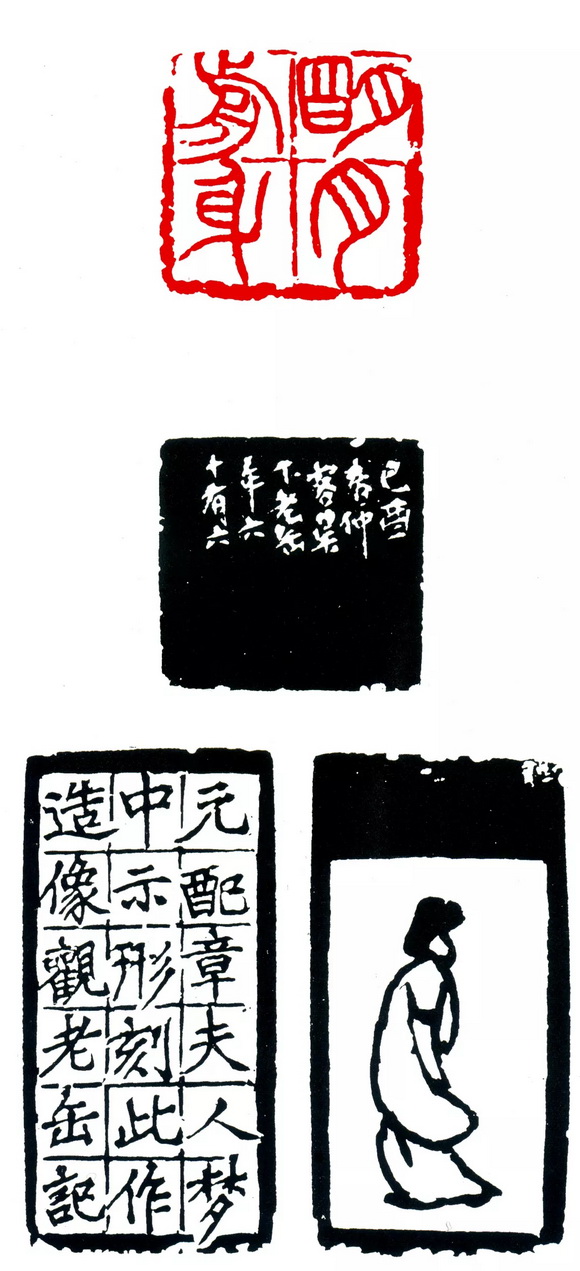 明月
前身
己酉
春仲
客吳
下老缶
年六
十有六
元配章夫人梦
中示形刻此作
造像觀老缶記